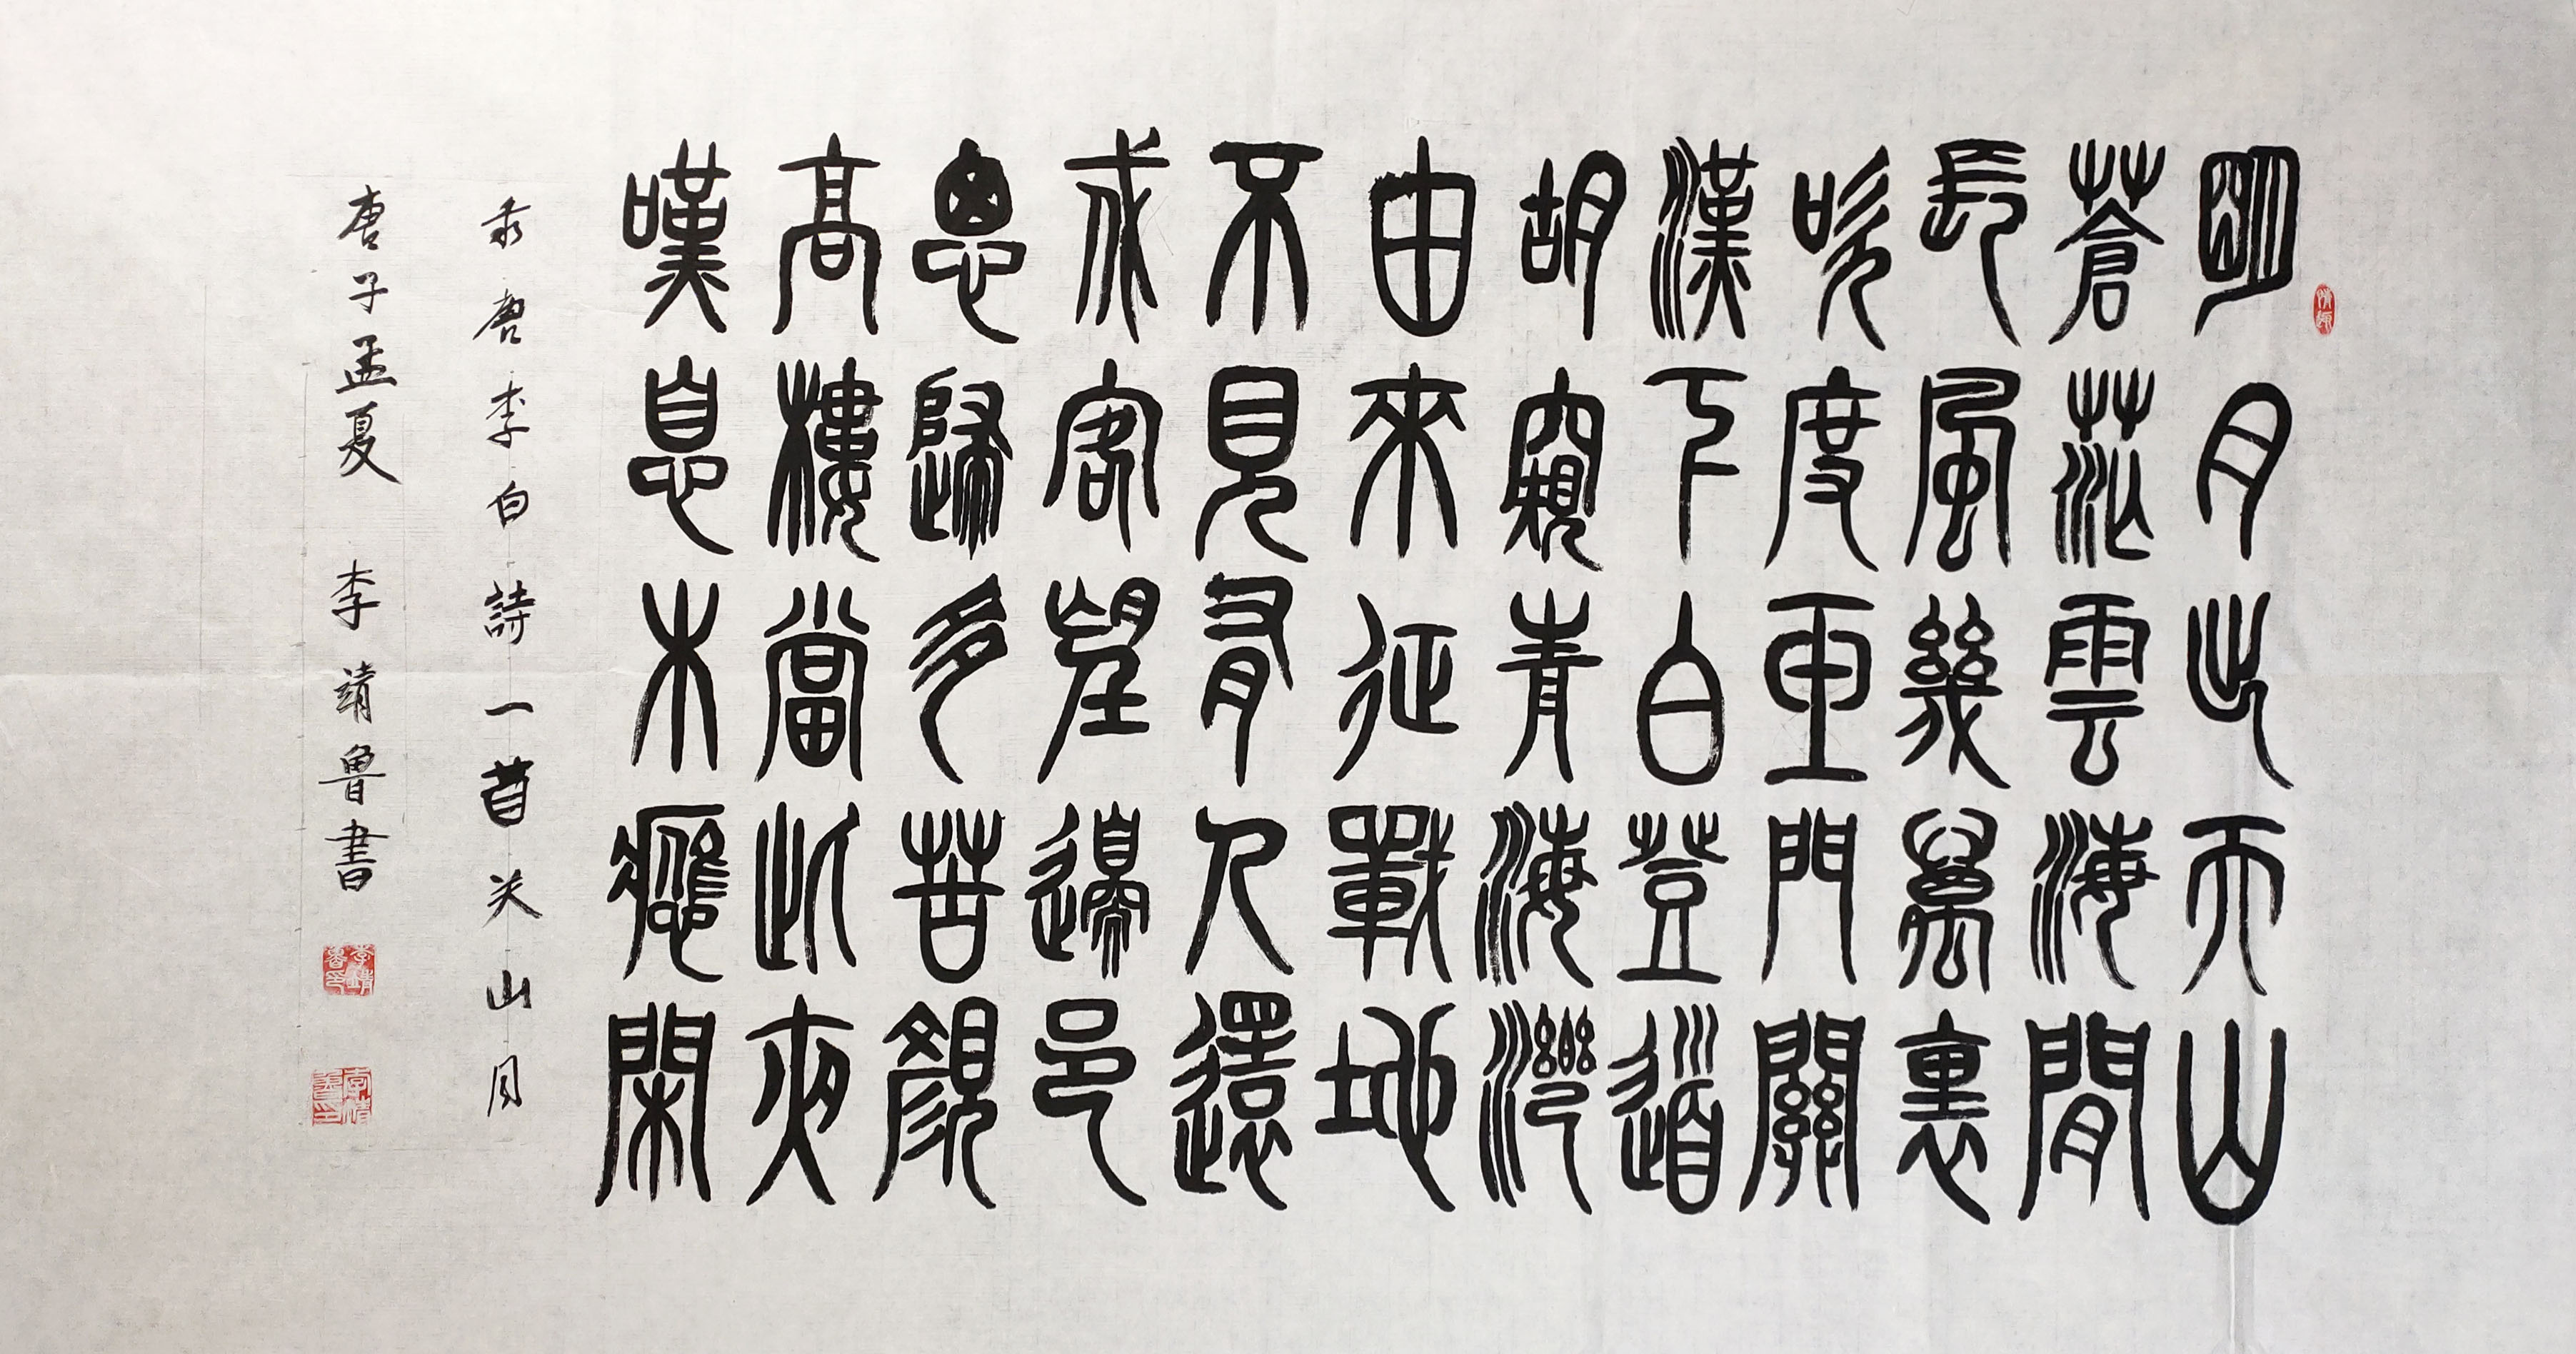 明月出天山
蒼茫雲海間
長風幾萬裏
吹度玉門關
漢下白登道
胡窺青海灣
由來征戰地
不見有人還
戍客望邊邑
思歸多苦顏
高樓當此夜
嘆息未應閑
录唐李白詩一首关山月
庚子孟夏 李靖魯書
李靖魯印